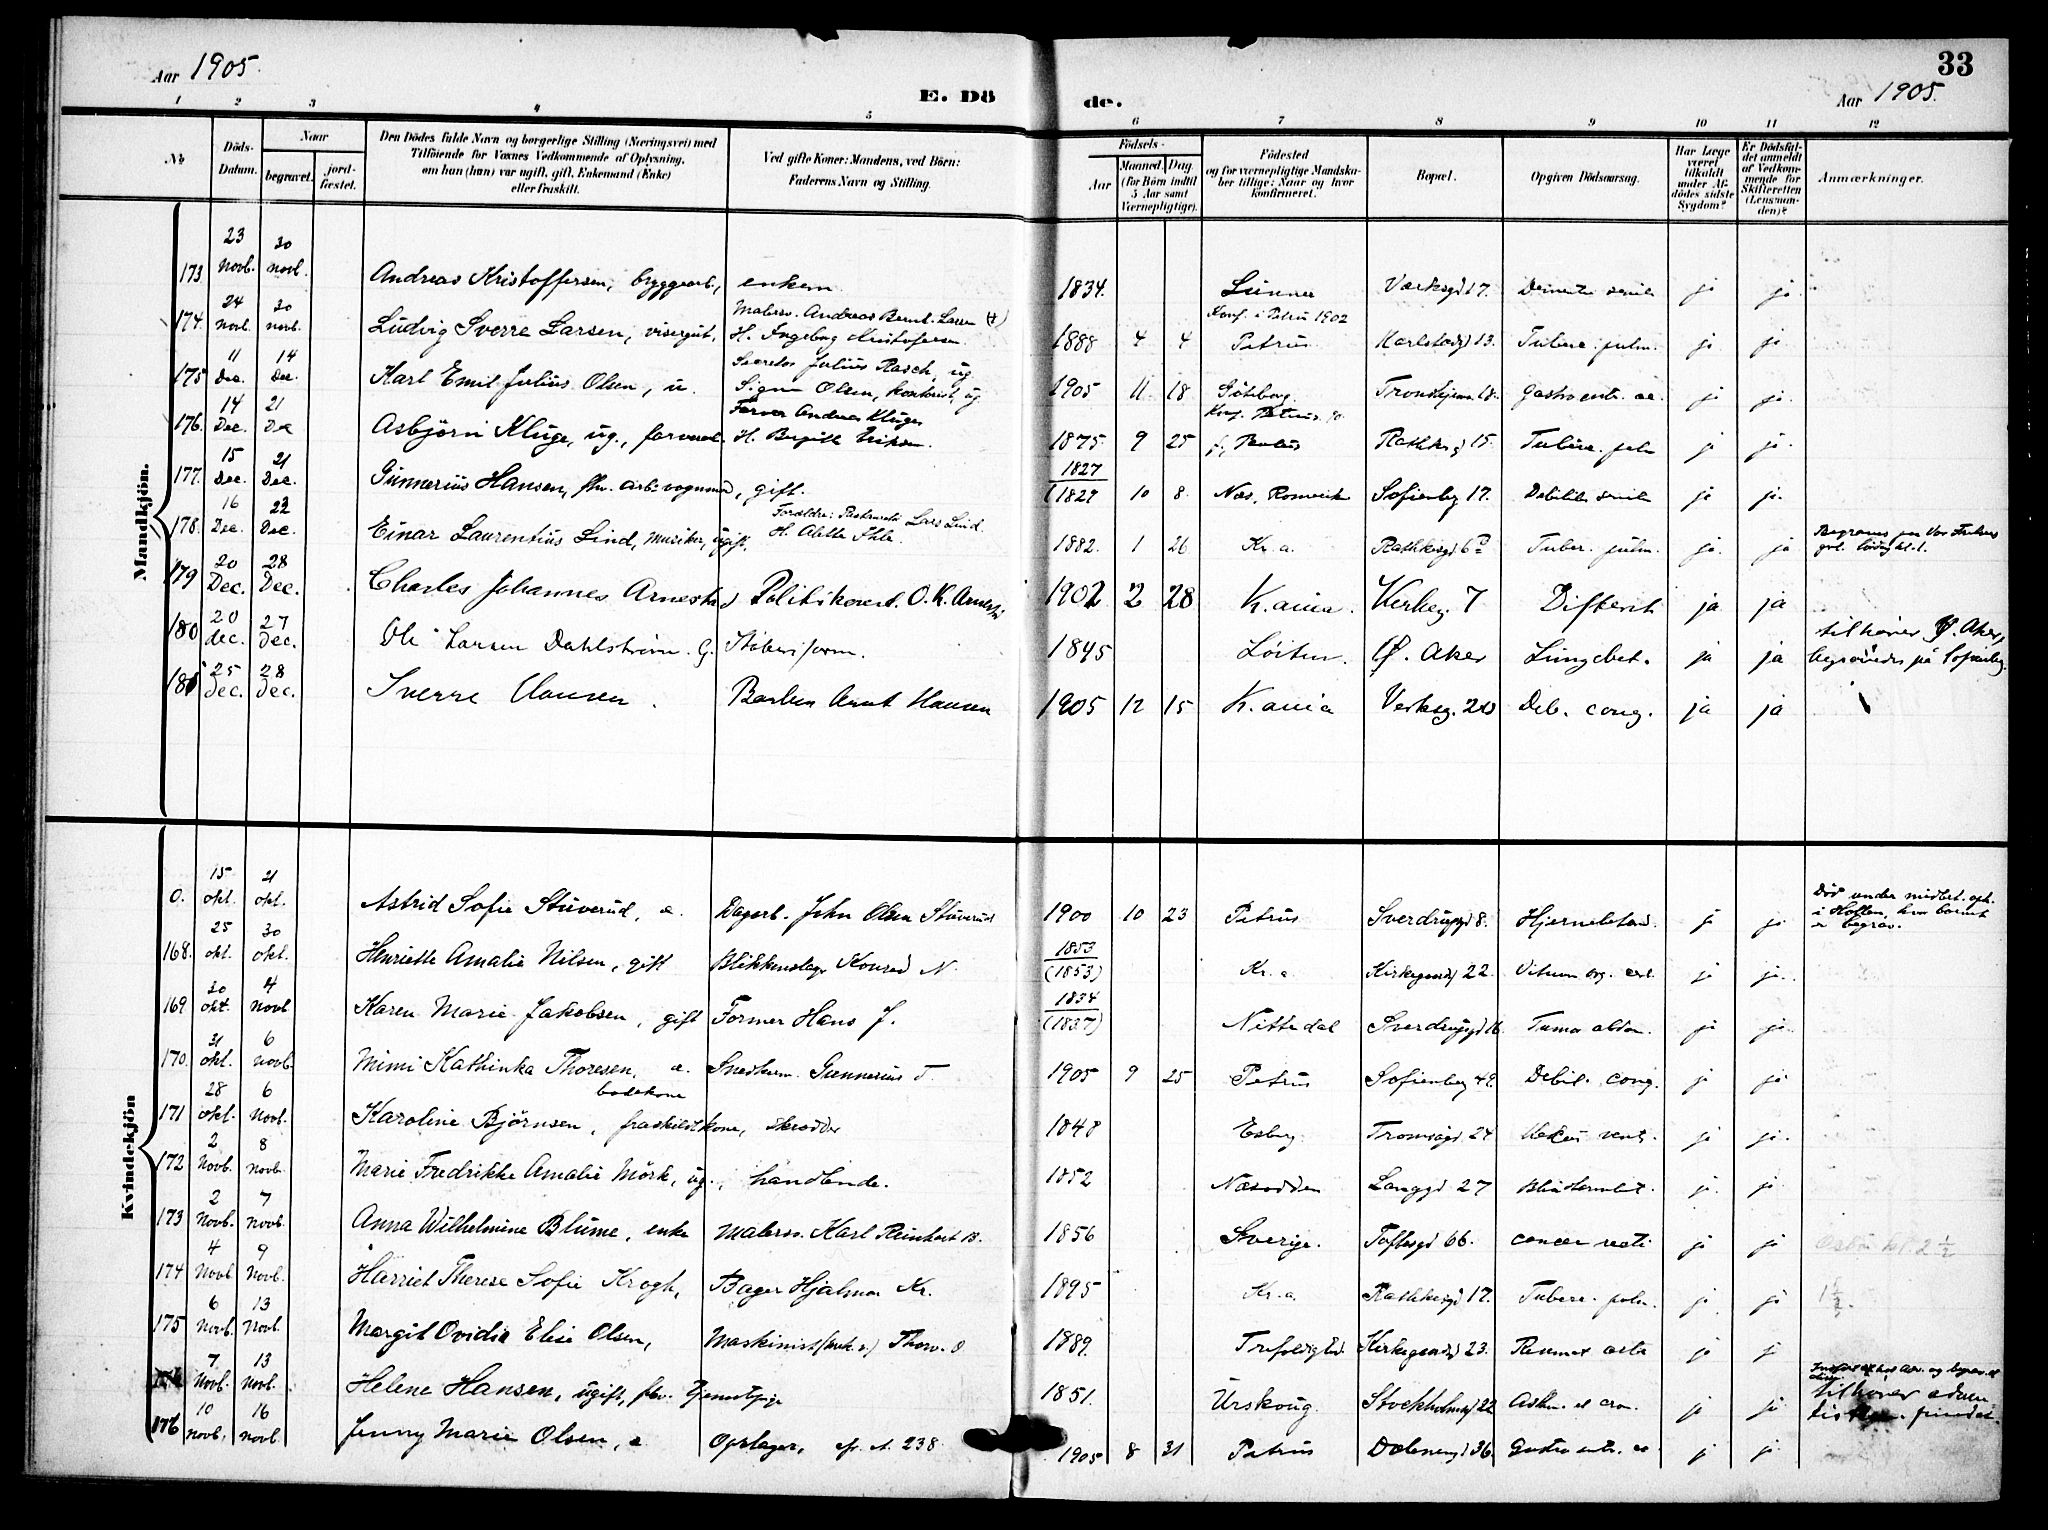 Aar 1905.
33
Aar 1905.
E. Dö
de.
1 2 3 4 5 6 7 8 9 10 11 12
No
Döds-Datum.
Naar
begravet.
jordfæstet.
Den Dödes fulde Navn og borgerlige Stilling (Næringsvei) med
Tilföiende for Voxnes Vedkommende af Oplysning,
om han (hun) var ugift, gift, Enkemand (Enke)
eller fraskilt.
Ved gifte Koner: Mandens, ved Börn:
Faderens Navn og Stilling.
Födsels-
Aar
Maaned.
Dag.
(for Börn indtil
5 Aar samt
Værnepligtige).
Födested
og for værnepligtige Mandskaber tillige: Naar og hvor
konfirmeret.
Bopæl.
Opgiven Dödsaarsag.
Har Læge været tilkaldt under Afdödes sidste Sygdom?
Er Dödsfaldet anmeldt af Vedkommende for Skifteretten (Lensmanden)?
Anmærkninger.
Mandkjön.
173 23 Novb. 30 novb. Andreas Kristoffersen, bryggearb., enkem. 1834. Lunner Værksgd 7. ja ja
174. 24 Novb. 30 novb. Ludvig Sverre Larsen, visergut. Malersv. Andreas Bernt Larsen (†)
H. Ingeborg Kristofersen 1888 4 4 Konf. i Petrus 1902
Petrus Karlstadgd 13. Tuberc. pulm. ja ja
175 11 Dec. 14 Dec. Karl Emil Julius Olsen, u. Julius Rasch, ug.
Signe Olsen, kontorist, ug 1905 11 18 Göteborg. Trondhjemsv. 18. Gastroentr. ac. ja ja
176. 14 Dec. 21 Dec. Asbjörn Kluge, ug., Farver Andreas Kluge
H. Birgitte Eriksen. 1875. 9 25 Konf. Petrus
Rathkesg 15. Tuberc. pulm ja ja
177. 15 Dec. 21 Dec. Gunnerius Hansen, fhv. arb. vognmd, gift. 1827
(1829 10 8. Næs, Romerike Sofienbg 17. Debilitas senilis ja ja.
178. 16 Dec. 22 Dec. Einar Laurentius Lind, musiker, ugift. Forældre: Lars Lind
H. Alette Ihle. 1882. 1 26 Kr.a. Rathkesgd 6 Tuber. pulm. ja. ja Begraves paa Vor Frelsers
179 20 Dec. 28 Dec. Charles Johannes Arnestad Politikonst. O. K. Arnestad 1902 2 28 K.ania. Verksg. 7 Difterit ja ja
180 20 dec. 27 Dec. Ole Larsen Dahlström. G. Støberiform. 1845 Løiten. Ø. Aker Lungebet. ja ja tilhører Ø. Aker,
begravedes på Sofienbg
181 25 Dec. 28 Dec. Sverre Hansen. Barber Arnt Hansen 1905 12 15 K.ania Verksg. 20 Deb. cong. ja ja
Kvindekjön
0. 15 okt. 21 okt. Astrid Sofie Stuverud, æ. Dagarb. John Olsen Stuverud 1900 10 23 Petrus Sverdrupsgd 8. Hjernebetænd. ja ja Död under midlert. oph.
i Hoften, hvor barnet
er begrav.
168. 25 okt. 30 okt. Henriette Amalie Nilsen, gift Blikkenslager Konrad N. 1853
(1853) Kr.a. Kirkegaardsgd 22. Vitium org. cord. ja ja
169 30 okt. 4 Novb Karen Marie Jakobsen, gift Former Hans J. 1834
(1837) Nittedal Sverdrupsgd 16. Tumor abdom. ja ja
170. 31 okt. 6 novb. Mimi Kathinka Thoresen, æ. Snedkersv. Gunnerius T. 1905 9 25 Petrus Sofienbeg 49. Debil. cong. ja ja
171 28 okt. 6 Novb. badekone
Karoline Björnsen, fraskilt kone, skrædder 1848 Esberg. Tromsögd 24 Ulcus vent. ja ja.
172 2 Novb. 8 Novb. Marie Fredrikke Amalie Mörk, ug., handlende. 1852 Næsodden Langgd 27 ja ja
173 2 Novb. 7 Novb. Anna Wilhelmine Blume, enke Malersv. Karl Reinhart B. 1856 Sverige. Toftesgd 66. cancer recti ja ja kl. 2 1/2
174 4 Novb. 9 Novb. Harriet Therese Sofie Krogh, Bager Hjalmar Kr. 1895 Kr.a. Rathkesgd 17. Tuberc. pulm. ja ja 1 1/2.
175 6 Novb. 13 Novb. Margit Ovidia Elise Olsen, Maskinist Thorv. O 1889. Trefoldighed. Kirkegaardsgd 23. ja ja
7 Novb. 13 Novb. Helene Hansen, ugift, fhv. Tjenestpige 1851. Urskoug. Stockholmsgd 22 Asthm. et cron. ja ja tilhører
176 10 novb. 16 novb. Jenny Marie Olsen, æ Opslager, cf. A. 238. 1905 8 31 Petrus Dælenengd 36. Gastro entr. ac ja ja